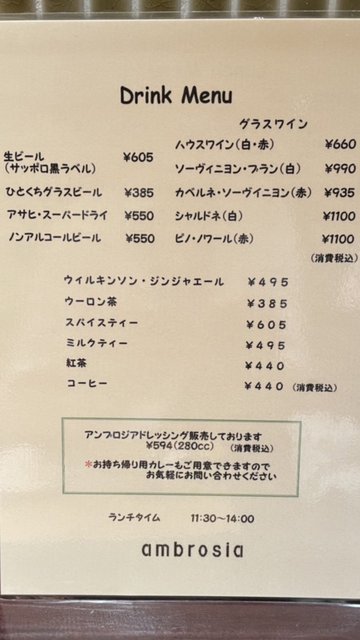 Drink Menu
生ビール ¥605
(サッポロ黒ラベル)
ひとくちグラスビール ¥385
アサヒ・スーパードライ ¥550
ノンアルコールビール ¥550
グラスワイン
ハウスワイン(白・赤) ¥660
ソーヴィニヨン・ブラン(白) ¥990
カベルネ・ソーヴィニヨン(赤) ¥935
シャルドネ(白) ¥1100
ピノ・ノワール(赤) ¥1100
(消費税込)
ウィルキンソン・ジンジャエール ¥495
ウーロン茶 ¥385
スパイスティー ¥605
ミルクティー ¥495
紅茶 ¥440
コーヒー ¥440 (消費税込)
アンブロジアドレッシング販売しております
¥594(280cc) (消費税込)
*お持ち帰り用カレーもご用意できますので
お気軽にお問い合わせください
ランチタイム 11:30~14:00
ambrosia